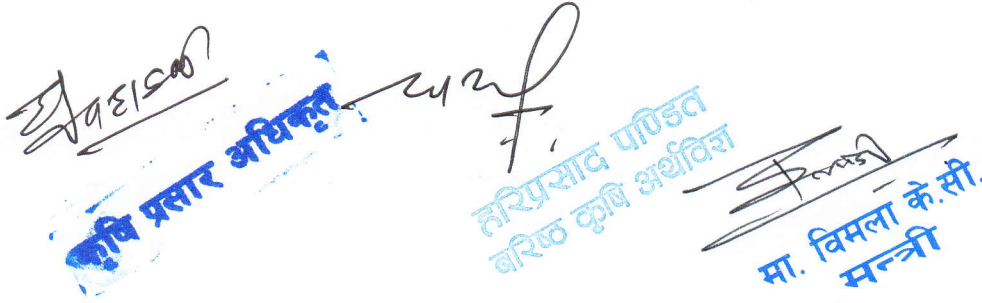 कृषि प्रसार अधिकृत
हरिप्रसाद पण्डित
बरिष्ठ कृषि अर्थविज्ञ
मा. विमला के.सी.
मन्त्री